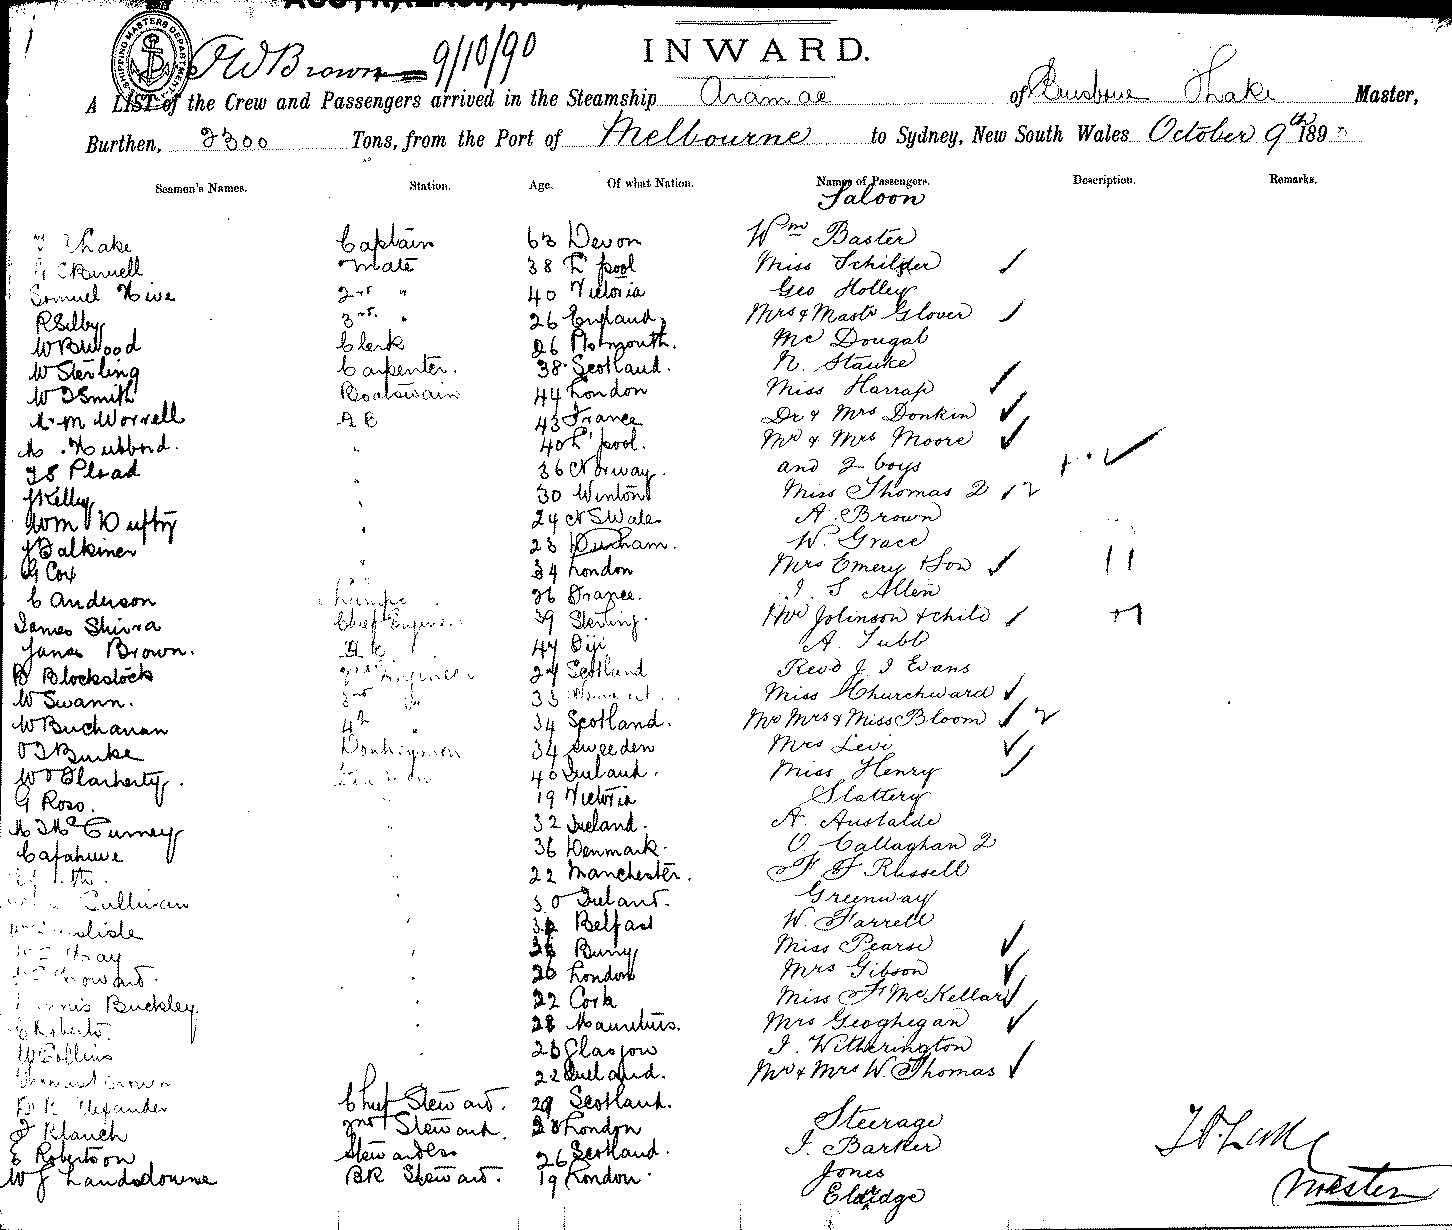 INWARD.
J W Brown 9/10/90
A LIST of the Crew and Passengers arrived in the Steamship Aramac of Brisbane Thake Master,
Burthen, 2300 Tons, from the Port of Melbourne to Sydney, New South Wales October 9th 1890
Seamen's Names. Station. Age. Of what Nation. Names of Passengers. Description. Remarks.
Saloon
Thake Captain 63 Devon Wm Baster
mate 38 L'pool Miss Schilder
Samuel Hive 2nd " 40 Victoria Geo Holley
R Selby 3rd " 26 England Mrs & Mastr Glover
W B Wood Clerk 26 Plymouth. Mc Dougal
W Sterling Carpenter. 38 Scotland. N. Stauke
W J Smith Boatswain 44 London Miss Harrap
Worrell A B 43 France Dr & Mrs Donkin
Hubbard. 40 L'pool. Mr & Mrs Moore
Pload 36 Norway. and 2 boys
J Kelly 30 Winton Miss Thomas 2
Wm Dufty 24 N S Wales A. Brown
J Balkiner 23 Durham. W. Grace
G Cox 34 London Mrs Emery & Son
C Anderson 26 France. J. S Allen
James Shirra Chief Engineer 39 Sterling. Johnson & child
James Brown. 44 Fiji A. Tubb
B Blockstock 2nd Engineer 24 Scotland Revd J. J Evans
W Swann. 3rd 33 Miss Churchward
W Buchanan 4th 34 Scotland. Mr Mrs & Miss Bloom
Burke Donkeyman 34 Sweeden Mrs Levi
W O'Flarherty. 40 Ireland. Miss Henry
G Roso. 19 Victoria Slattery
McCurney 32 Ireland. A. Austalde
36 Denmark. O. Callaghan 2
22 Manchester. F F Russell
Sullivan 30 Ireland. Greenway
Belfast W. Farrell
Bury Miss Pearse
Howard. 26 London Mrs Gibson
Dennis Buckley 22 Cork Miss F McKellar
E Roberts. 28 Mauritius. Mrs Geoghegan
W Collins 23 Glasgow J. Witherington
Brown 22 Ireland. Mr & Mrs W. Thomas
Alexander Chief Steward. 29 Scotland.
J Klauch 2nd Steward. London Steerage
E Robertson Stewardess 26 Scotland. J. Barker
W J Landsdowne BR Steward. 19 London. Jones
Eldridge
Master